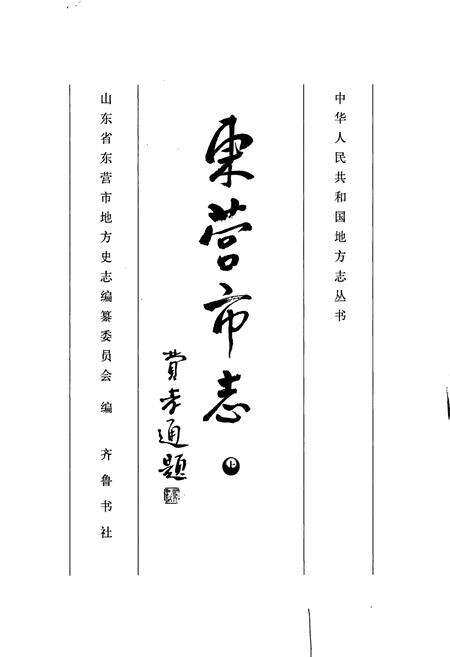 中华人民共和国地方志丛书
东营市志
上
费孝通題
山东省东营市地方史志编纂委员会 编 齐鲁书社